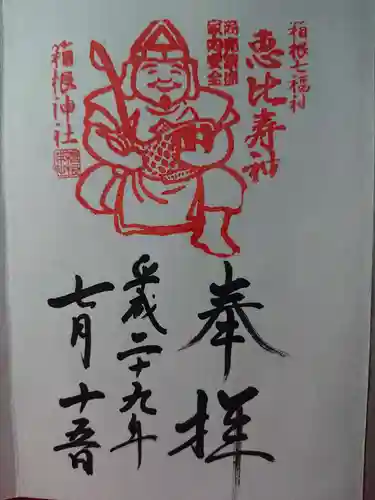 箱根七福神
恵比寿神
商売繁盛
家内安全
箱根神社
奉拝
平成二十九年
七月十五日